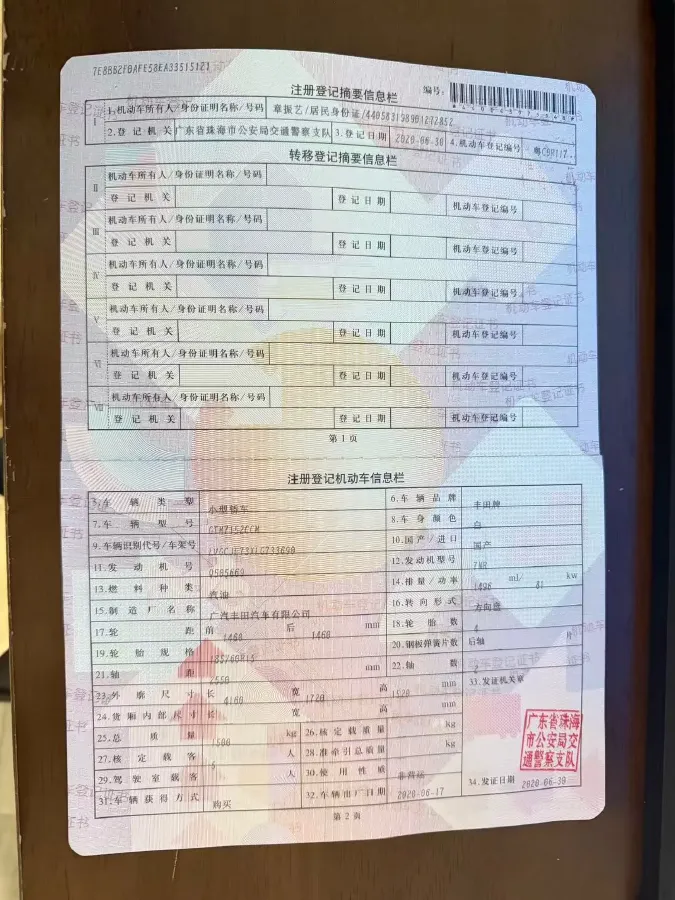 7E8BB2FBAFE58EA33515121
注册登记摘要信息栏 编号:
Ⅰ 1.机动车所有人/身份证明名称/号码 章振艺/居民身份证/
2.登记机关 广东省珠海市公安局交通警察支队 3.登记日期 2020-06-30 4.机动车登记编号
转移登记摘要信息栏
Ⅱ 机动车所有人/身份证明名称/号码
登记机关 登记日期 机动车登记编号
Ⅲ 机动车所有人/身份证明名称/号码
登记机关 登记日期 机动车登记编号
Ⅳ 机动车所有人/身份证明名称/号码
登记机关 登记日期 机动车登记编号
Ⅴ 机动车所有人/身份证明名称/号码
登记机关 登记日期 机动车登记编号
Ⅵ 机动车所有人/身份证明名称/号码
登记机关 登记日期 机动车登记编号
Ⅶ 机动车所有人/身份证明名称/号码
登记机关 登记日期 机动车登记编号
第1页
注册登记机动车信息栏
5.车辆类型 小型轿车 6.车辆品牌 丰田牌
7.车辆型号 GTM7152CCM 8.车身颜色 白
9.车辆识别代号/车架号 10.国产/进口 国产
11.发动机号 12.发动机型号 7KR
13.燃料种类 汽油 14.排量/功率 1496 ml/ 81 kw
15.制造厂名称 广汽丰田汽车有限公司 16.转向形式 方向盘
17.轮距 前 1460 后 1460 mm 18.轮胎数 4
19.轮胎规格 185/60R15 20.钢板弹簧片数 后轴 片
21.轴距 2550 mm 22.轴数 2
23.外廓尺寸 长 4160 宽 1720 高 1520 mm 33.发证机关章
24.货厢内部尺寸 长 宽 高 mm
25.总质量 1500 kg 26.核定载质量 kg
27.核定载客 5 人 28.准牵引总质量 kg
29.驾驶室载客 人 30.使用性质 非营运
31.车辆获得方式 购买 32.车辆出厂日期 2020-06-17 34.发证日期 2020-06-30
广东省珠海
市公安局交
通警察支队
第2页